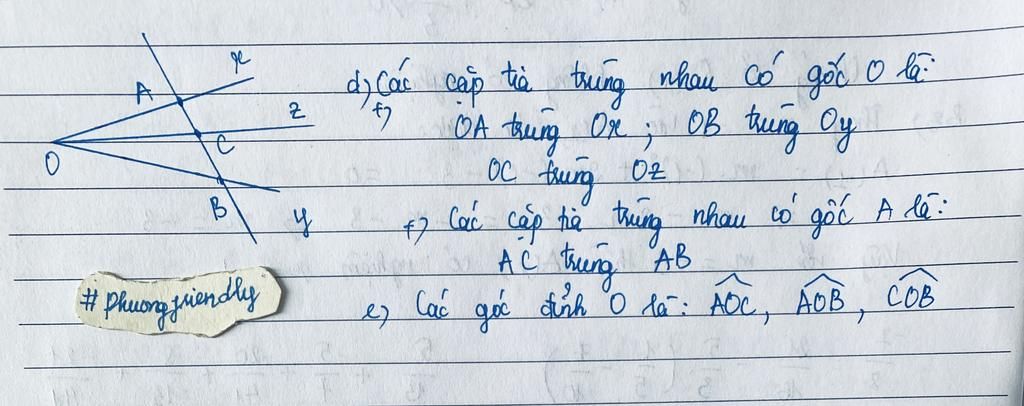 x
A
d) Các cặp tia trùng nhau có gốc O là:
z
+) OA trùng Ox ; OB trùng Oy
C
O
OC trùng Oz
B
y
+) Các cặp tia trùng nhau có gốc A là:
AC trùng AB
#phuongfriendly
e) Các góc đỉnh O là: AOC, AOB, COB